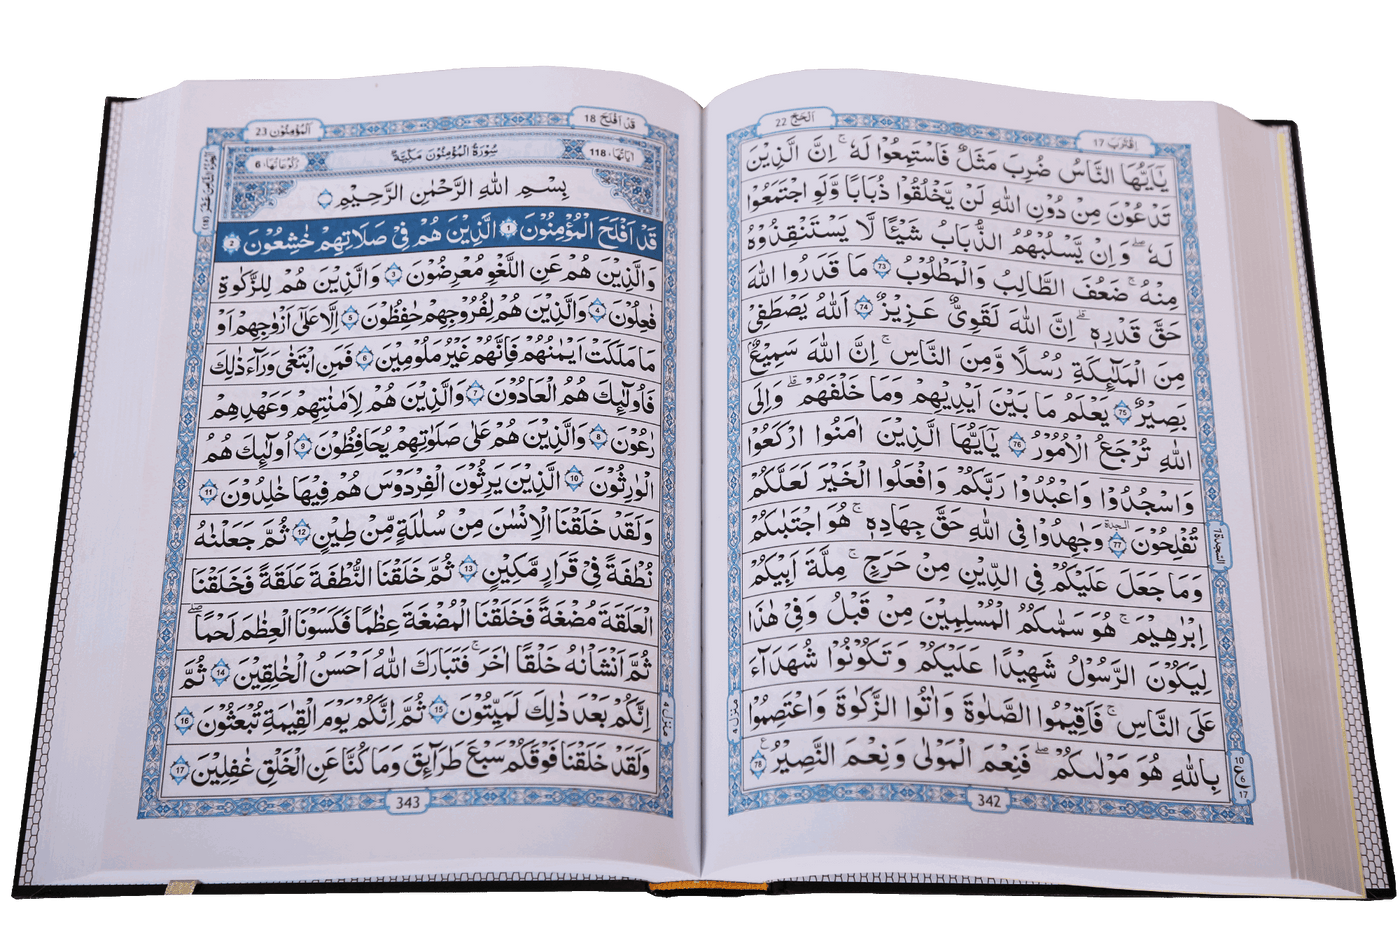 اِقْتَرَبَ 17
اَلْحَجّ 22
يٰٓاَيُّهَا النَّاسُ ضُرِبَ مَثَلٌ فَاسْتَمِعُوْا لَهٗ ؕ اِنَّ الَّذِيْنَ
تَدْعُوْنَ مِنْ دُوْنِ اللّٰهِ لَنْ يَّخْلُقُوْا ذُبَابًا وَّلَوِ اجْتَمَعُوْا
لَهٗ ؕ وَاِنْ يَّسْلُبْهُمُ الذُّبَابُ شَيْئًا لَّا يَسْتَنْقِذُوْهُ
مِنْهُ ؕ ضَعُفَ الطَّالِبُ وَالْمَطْلُوْبُ 73 مَا قَدَرُوا اللّٰهَ
حَقَّ قَدْرِهٖ ؕ اِنَّ اللّٰهَ لَقَوِيٌّ عَزِيْزٌ 74 اَللّٰهُ يَصْطَفِيْ
مِنَ الْمَلٰٓئِكَةِ رُسُلًا وَّمِنَ النَّاسِ ؕ اِنَّ اللّٰهَ سَمِيْعٌۢ
بَصِيْرٌ 75 يَعْلَمُ مَا بَيْنَ اَيْدِيْهِمْ وَمَا خَلْفَهُمْ ؕ وَاِلَى
اللّٰهِ تُرْجَعُ الْاُمُوْرُ 76 يٰٓاَيُّهَا الَّذِيْنَ اٰمَنُوا ارْكَعُوْا
وَاسْجُدُوْا وَاعْبُدُوْا رَبَّكُمْ وَافْعَلُوا الْخَيْرَ لَعَلَّكُمْ
تُفْلِحُوْنَ 77 وَجٰهِدُوْا فِي اللّٰهِ حَقَّ جِهَادِهٖ ؕ هُوَ اجْتَبٰىكُمْ
وَمَا جَعَلَ عَلَيْكُمْ فِي الدِّيْنِ مِنْ حَرَجٍ ؕ مِلَّةَ اَبِيْكُمْ
اِبْرٰهِيْمَ ؕ هُوَ سَمّٰىكُمُ الْمُسْلِمِيْنَ مِنْ قَبْلُ وَفِيْ هٰذَا
لِيَكُوْنَ الرَّسُوْلُ شَهِيْدًا عَلَيْكُمْ وَتَكُوْنُوْا شُهَدَآءَ
عَلَى النَّاسِ ؕ فَاَقِيْمُوا الصَّلٰوةَ وَاٰتُوا الزَّكٰوةَ وَاعْتَصِمُوْا
بِاللّٰهِ هُوَ مَوْلٰىكُمْ ؕ فَنِعْمَ الْمَوْلٰى وَنِعْمَ النَّصِيْرُ 78
السجدة
منزل 4
10
6
17
342
قَدْ اَفْلَحَ 18
اَلْمُؤْمِنُوْن 23
اٰيَاتُهَا، 118
سُوْرَةُ الْمُؤْمِنُوْنَ مَكِّيَّةٌ
رُكُوْعَاتُهَا، 6
بِسْمِ اللّٰهِ الرَّحْمٰنِ الرَّحِيْمِ
قَدْ اَفْلَحَ الْمُؤْمِنُوْنَ 1 الَّذِيْنَ هُمْ فِيْ صَلَاتِهِمْ خٰشِعُوْنَ 2
وَالَّذِيْنَ هُمْ عَنِ اللَّغْوِ مُعْرِضُوْنَ 3 وَالَّذِيْنَ هُمْ لِلزَّكٰوةِ
فٰعِلُوْنَ 4 وَالَّذِيْنَ هُمْ لِفُرُوْجِهِمْ حٰفِظُوْنَ 5 اِلَّا عَلٰٓى اَزْوَاجِهِمْ اَوْ
مَا مَلَكَتْ اَيْمٰنُهُمْ فَاِنَّهُمْ غَيْرُ مَلُوْمِيْنَ 6 فَمَنِ ابْتَغٰى وَرَآءَ ذٰلِكَ
فَاُولٰٓئِكَ هُمُ الْعَادُوْنَ 7 وَالَّذِيْنَ هُمْ لِاَمٰنٰتِهِمْ وَعَهْدِهِمْ
رٰعُوْنَ 8 وَالَّذِيْنَ هُمْ عَلٰى صَلَوٰتِهِمْ يُحَافِظُوْنَ 9 اُولٰٓئِكَ هُمُ
الْوٰرِثُوْنَ 10 الَّذِيْنَ يَرِثُوْنَ الْفِرْدَوْسَ هُمْ فِيْهَا خٰلِدُوْنَ 11
وَلَقَدْ خَلَقْنَا الْاِنْسٰنَ مِنْ سُلٰلَةٍ مِّنْ طِيْنٍ 12 ثُمَّ جَعَلْنٰهُ
نُطْفَةً فِيْ قَرَارٍ مَّكِيْنٍ 13 ثُمَّ خَلَقْنَا النُّطْفَةَ عَلَقَةً فَخَلَقْنَا
الْعَلَقَةَ مُضْغَةً فَخَلَقْنَا الْمُضْغَةَ عِظٰمًا فَكَسَوْنَا الْعِظٰمَ لَحْمًا
ثُمَّ اَنْشَاْنٰهُ خَلْقًا اٰخَرَ ؕ فَتَبَارَكَ اللّٰهُ اَحْسَنُ الْخٰلِقِيْنَ 14 ثُمَّ
اِنَّكُمْ بَعْدَ ذٰلِكَ لَمَيِّتُوْنَ 15 ثُمَّ اِنَّكُمْ يَوْمَ الْقِيٰمَةِ تُبْعَثُوْنَ 16
وَلَقَدْ خَلَقْنَا فَوْقَكُمْ سَبْعَ طَرَآئِقَ وَمَا كُنَّا عَنِ الْخَلْقِ غٰفِلِيْنَ 17
منزل 4
343